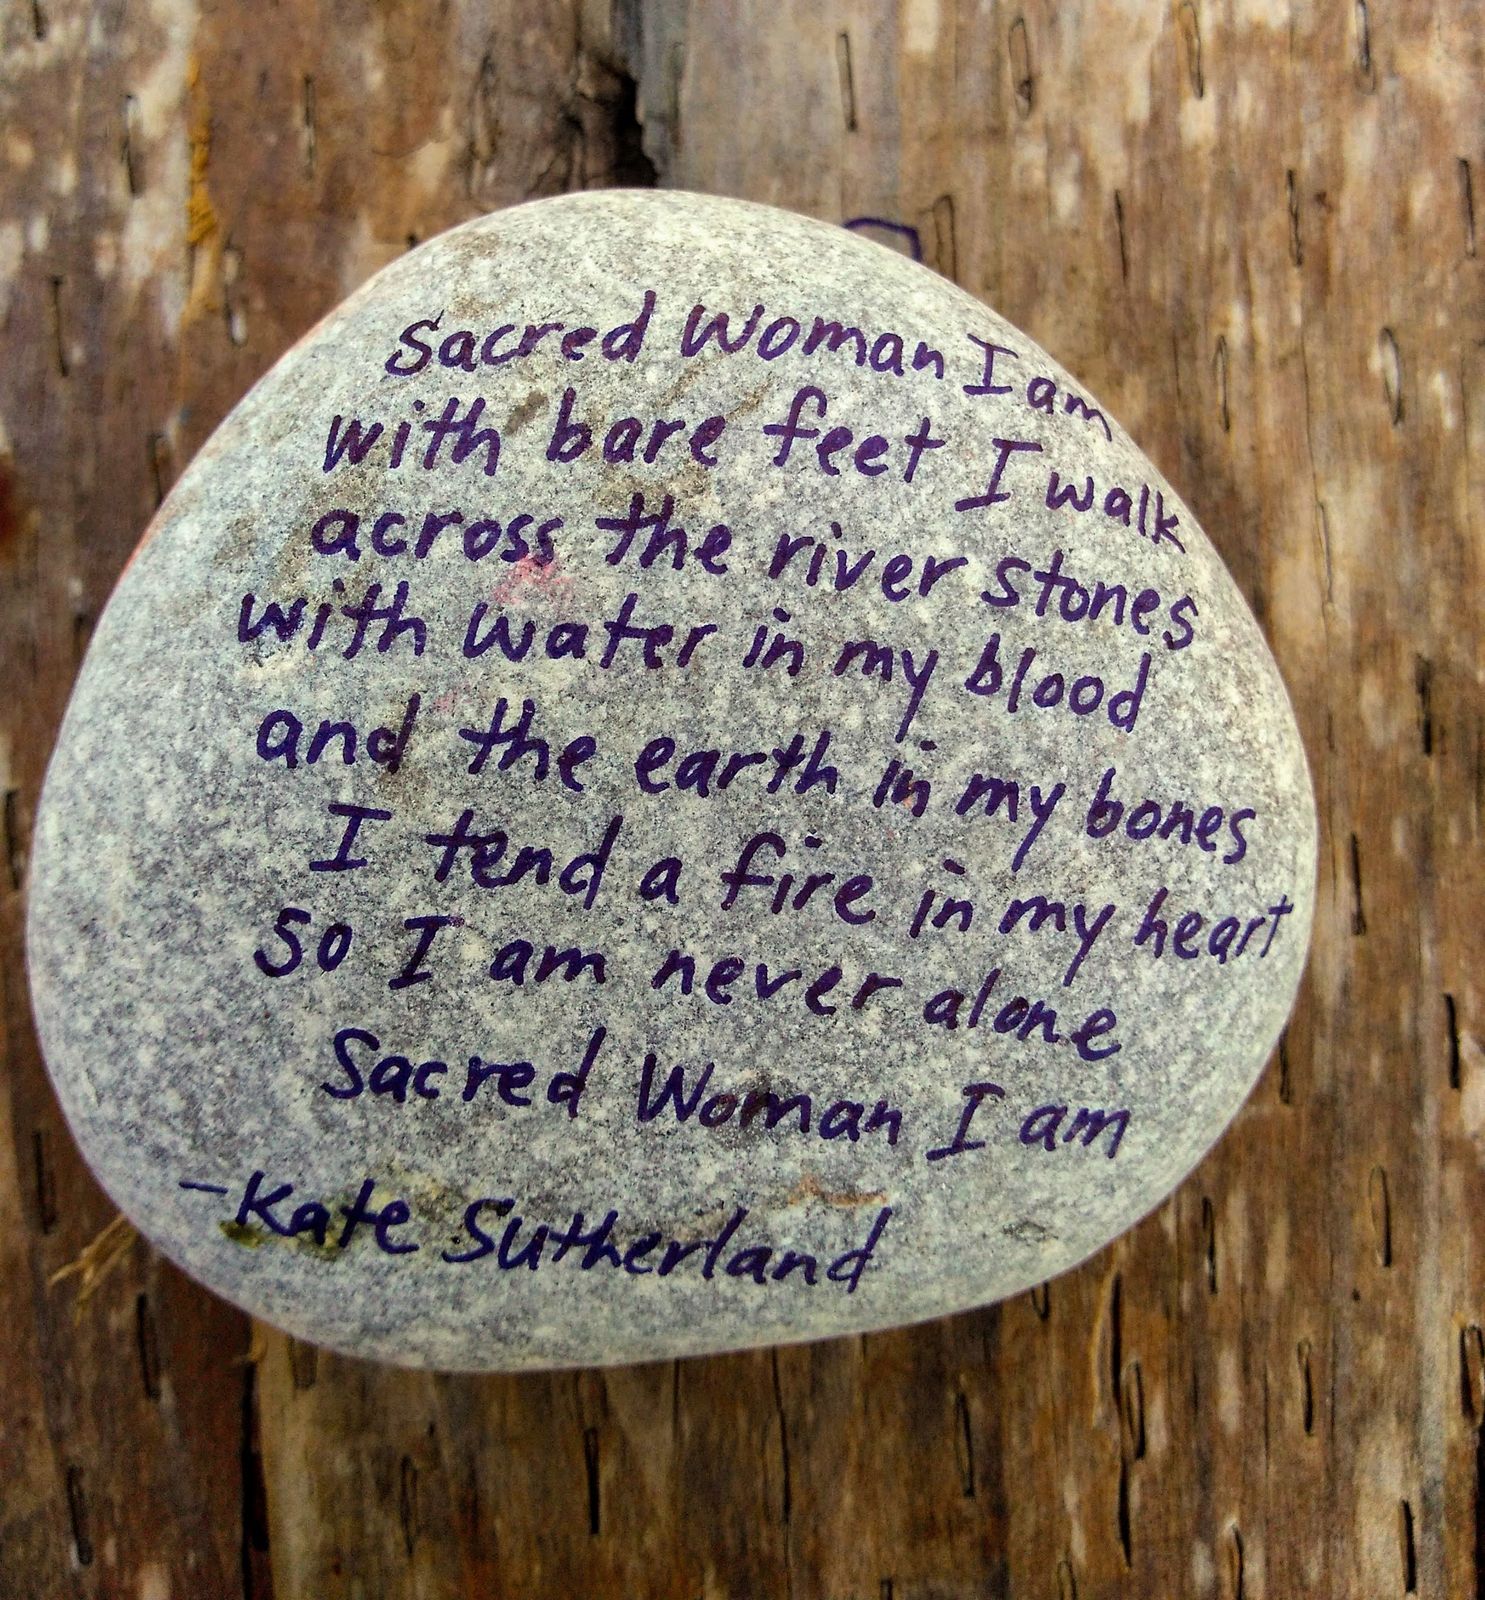 Sacred Woman I am
with bare feet I walk
across the river stones
with water in my blood
and the earth in my bones
I tend a fire in my heart
so I am never alone
Sacred Woman I am
-Kate Sutherland